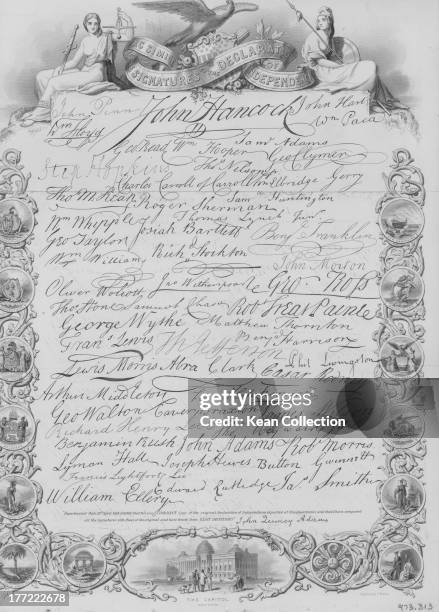 FAC SIMI
SIGNATURES TO THE DECLARAT
OF
INDEPENDEN
John Penn John Hancock John Hart
Wm Floyd Wm Paca
Geo Read Wm Hooper Saml Adams
Step Hopkins Thos Nelson jr Geo Clymer
Charles Carroll of Carrollton Elbridge Gerry
Tho M:Kean Roger Sherman Saml Huntington
Wm Whipple Thomas Lynch Junr
Geo Taylor Josiah Bartlett Benj Franklin
Wm Williams Richd Stockton John Morton
Oliver Wolcott Jno Witherspoon Geo Ross
Thos Stone Samuel Chase Robt Treat Paine
George Wythe Matthew Thornton
Frans Lewis Th Jefferson Benj Harrison
Lewis Morris Abra Clark Phil Livingston
Arthur Middleton
Geo Walton
Richard Henry Lee
Benjamin Rush John Adams Robt Morris
Lyman Hall Joseph Hewes Button Gwinnett
Francis Lightfoot Lee
William Ellery Edward Rutledge Jas Smith
John Quincy Adams
THE CAPITOL
473.313
gettyimages
Credit: Kean Collection
177222678